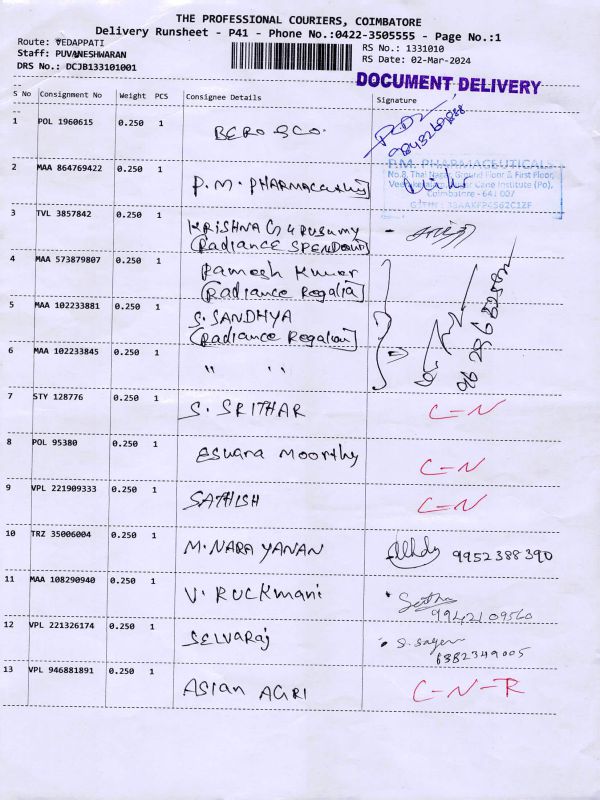 THE PROFESSIONAL COURIERS, COIMBATORE
Delivery Runsheet - P41 - Phone No.:0422-3505555 - Page No.:1
Route: VEDAPPATI
RS No.: 1331010
Staff: PUVANESHWARAN
RS Date: 02-Mar-2024
DRS No.: DCJB133101001
DOCUMENT DELIVERY
S No Consignment No Weight PCS Consignee Details Signature
1 POL 1960615 0.250 1 BERO & CO.
2 MAA 864769422 0.250 1 P.M. PHARMACeuticals
P.M. PHARMACEUTICALS
No.8, Thai Nagar, Ground Floor & First Floor,
Cane Institute (Po),
Coimbatore - 641 007
3 TVL 3857842 0.250 1 KRISHNA
(Radiance SPENDOUR)
4 MAA 573879807 0.250 1 Ramesh Kumar
(Radiance Regalia)
5 MAA 102233881 0.250 1 S. SANDHYA
(Radiance Regalia)
6 MAA 102233845 0.250 1 " "
7 STY 128776 0.250 1 S. SRITHAR C-N
8 POL 95380 0.250 1 ESWARA MOORTHY C-N
9 VPL 221909333 0.250 1 SATHISH C-N
10 TRZ 35006004 0.250 1 M. NARAYANAN 9952388390
11 MAA 108290940 0.250 1 V. RUCKMANI
9942109560
12 VPL 221326174 0.250 1 SELVARAJ
6382349005
13 VPL 946881891 0.250 1 ASIAN AGRI C-N-R